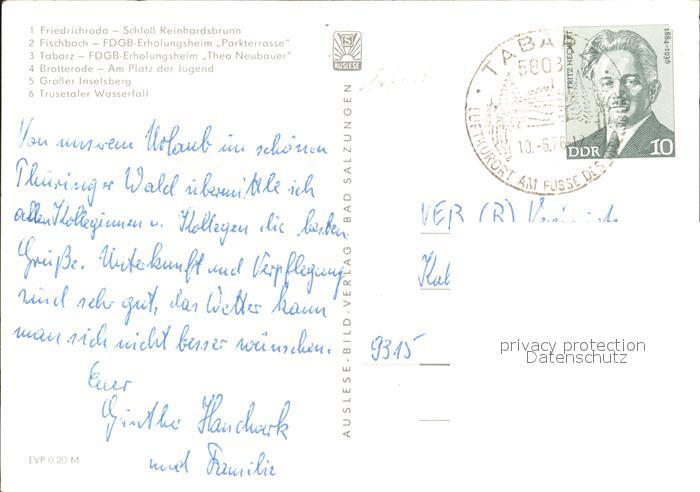 1 Friedrichroda – Schloß Reinhardsbrunn
2 Fischbach – FDGB-Erholungsheim „Parkterrasse"
3 Tabarz – FDGB-Erholungsheim „Theo Neubauer"
4 Brotterode – Am Platz der Jugend
5 Großer Inselsberg
6 Trusetaler Wasserfall
AUSLESE
TABARZ
5808
10.-6.76
LUFTKURORT AM FUSSE DES
FRITZ HECKERT
1884-1936
DDR 10
Von unserem Urlaub im schönen
Thüringer Wald übermittle ich
allen Kolleginnen u. Kollegen die besten
Grüße. Unterkunft und Verpflegung
sind sehr gut, das Wetter kann
man sich nicht besser wünschen.
Euer
Günther Handwerk
und Familie
AUSLESE-BILD-VERLAG BAD SALZUNGEN
VEB (R) Vereinigte
9315
privacy protection
Datenschutz
EVP 0,20 M